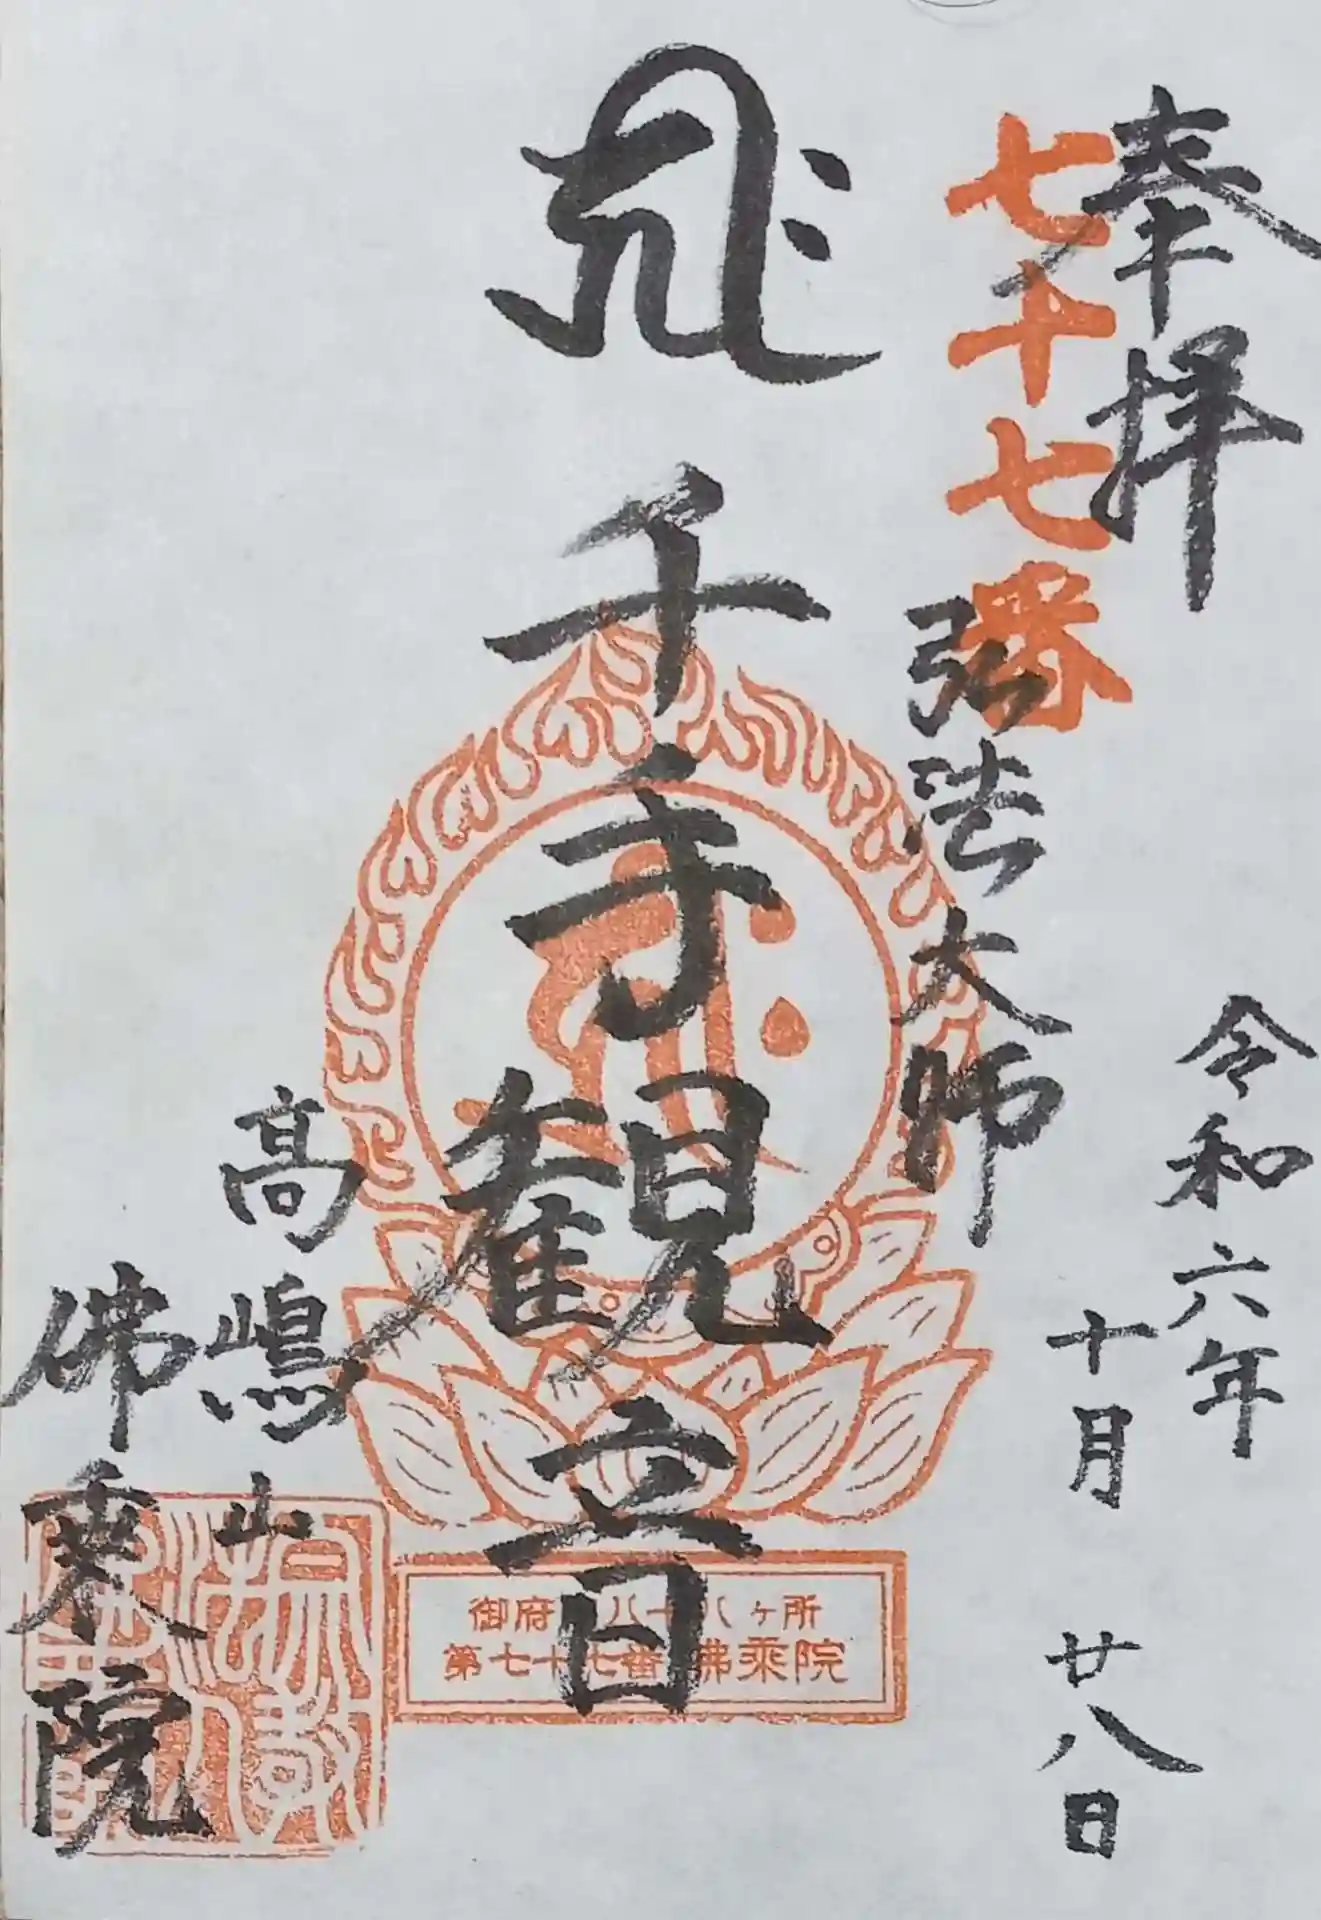 奉拝
令和六年
十月
廿八日
七十七番
弘法大師
千手観音
高嶋山
佛乗院
御府八十八ヶ所
第七十七番佛乗院